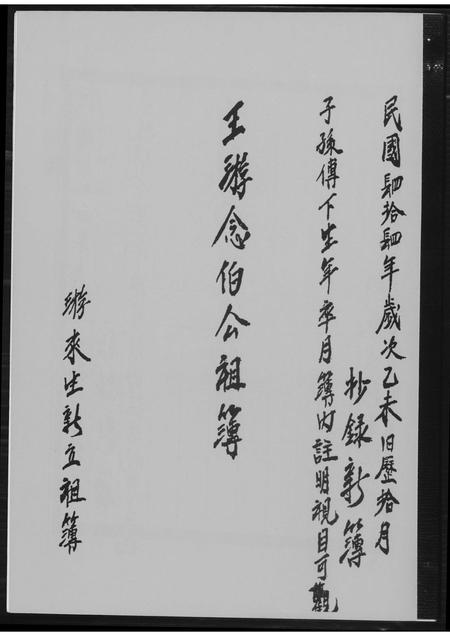 民國肆拾肆年歲次乙未旧歷拾月
抄錄新簿
子孫傳下生年卒月簿內註明視目可觀
王游念伯公祖簿
游來生新立祖簿